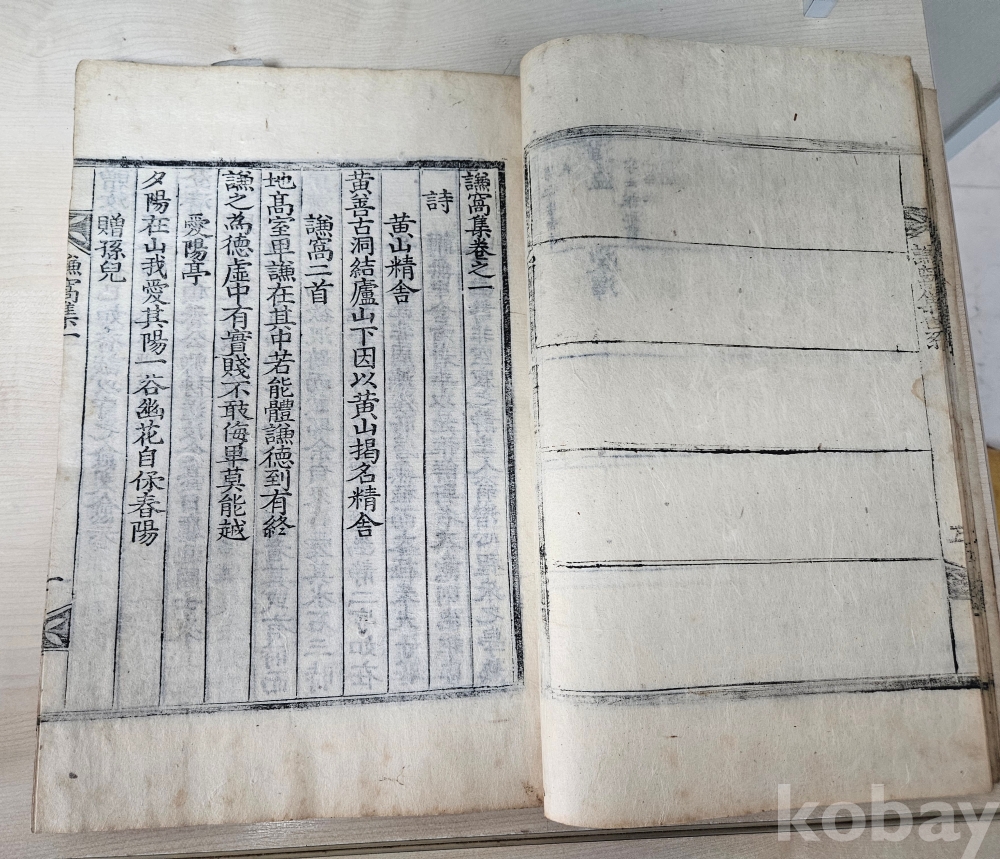 謙窩集卷之一
詩
黃山精舍
黃善古洞結廬山下因以黃山揭名精舍
謙窩二首
地髙室卑謙在其中若能體謙德到有終
謙之為德虛中有實賤不敢侮卑莫能越
愛陽亭
夕陽在山我愛其陽一谷幽花自保春陽
贈孫兒
謙窩集一
kobay